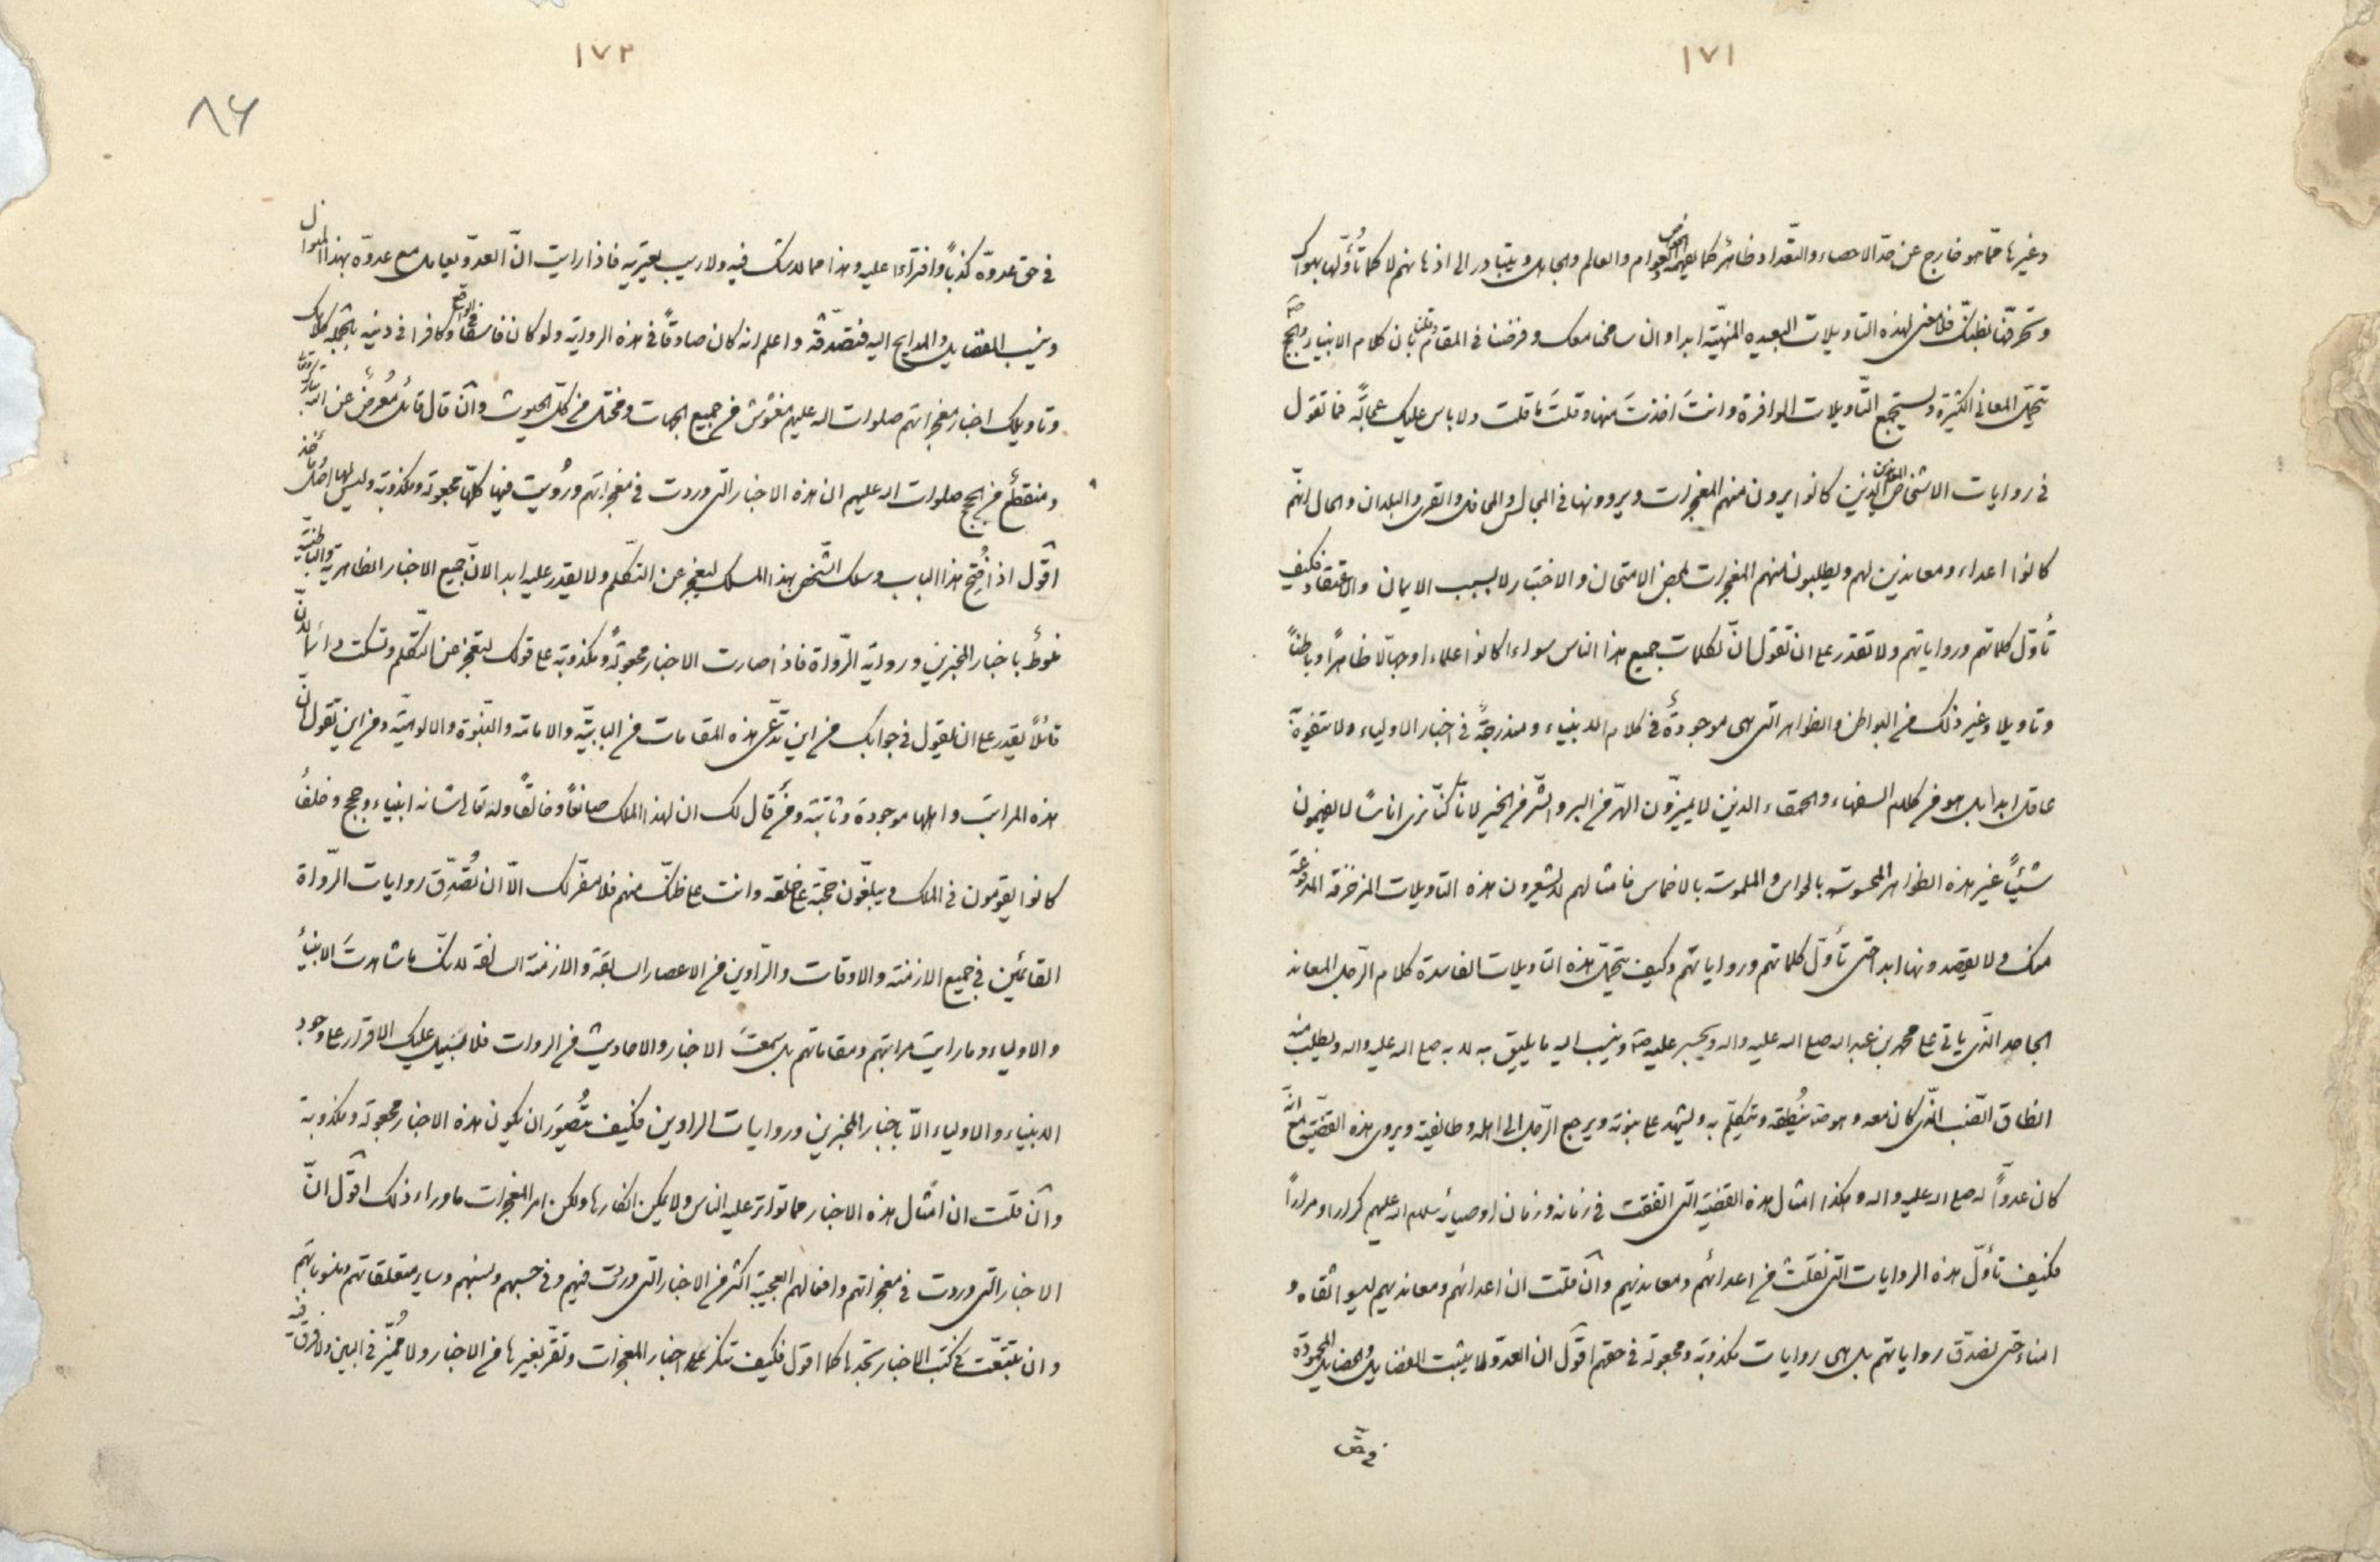 ١٧١
وغيرها مما هو خارج عن حد الاحصاء والتعداد وظاهر كما يفهم الخواص والعوام والعالم والجاهل ويتبادر الى اذهانهم لا كما تأولها بهواك
وتحرفها بظنك فلا معنى لهذه التاويلات البعيده المنهيّة ابدا وان سامحنا معك وفرضنا في المقام وقلنا بان كلام الانبياء والحجج
تتحمل المعاني الكثيرة ويستجمع التّاويلات الوافرة وانتَ اخذتَ منها وقلتَ ما قلت ولا باس عليك فما تقول
في روايات الاشخاص الذين كانوا يرون منهم المعجزات ويروونها في المجالس والمحافل والقرى والبلدان والحال انّهم
كانوا اعداء ومعاندين لهم ويطلبون منهم المعجزات لمحض الامتحان والاختبار لا بسبب الايمان والاعتقاد فكيف
تأوّل كلماتهم ورواياتهم ولا تقدر على ان تقول انّ لكلمات جميع هذا الناس سواء كانوا علماء او جهالا ظاهرًا وباطنًا
وتاويلا وغير ذلك من البواطن والظواهر التى هى موجودة في كلام الانبياء ومندرجةً في اخبار الاولياء ولا يتفوّه
عاقل ابدا بل هو من كلام السفهاء والحمقاء الذين لا يميزون الهرّ من البر والشّر من الخير لانّا كنّا نرى اناسًا لا يفهمون
شيئًا غير هذه الظواهر المحسوسة بالحواس والملموسة بالاخماس فامثالهم لا يشعرون هذه التاويلات المزخرفة
منك ولا يقصدونها ابدا حتى تأوّل كلماتهم ورواياتهم وكيف يتحمل هذه التاويلات الفاسدة كلام الرّجل المعاند
الجاحد الّذى ياتى على محمد بن عبد الله صلى الله عليه واله ويجسر عليه وينسب اليه ما يليق به لا به صلى الله عليه واله ويطلب منه
انطاق الضّب الّذى كان معه وهو ينُطقه ويتكلّم به ويشهد على نبوته ويرجع الرّجل الى اهله وطائفته ويروى هذه القضيّة مع انّه
كان عدوًّا له صلى الله عليه واله وهكذا امثال هذه القضية التى اتفقت في زمانه وزمان اوصيائه سلام الله عليهم كرارا ومرارًا
فكيف تأوّل هذه الروايات التى نقلت من اعدائهم ومعانديهم وان قلت ان اعدائهم ومعانديهم ليسوا ثقاة و
امناء حتى نصدّق رواياتهم بل هى روايات مكذوبة ومجعولة في حقهم اقول ان العدو لما يثبت الفضايل والخصايل المحمودة
في حق
١٧٢
٨٦
في حق عدوّه كذبًا وافتراءا عليه وهذا مما لا شك فيه ولا ريب يعتريه فاذا رايت انّ العدوّ يعامل مع عدوّه بهذا المنوال
وينسب الفضايل والمدايح اليه فتصدّقه واعلم انه كان صادقًا في هذه الرواية ولو كان فاسقًا في الواقع وكافرا في دينه بالجمله كلامك
وتاويلك اخبار معجزاتهم صلوات الله عليهم مغشوش من جميع الجهات ومختل من كلّ الحيوث وان قال قائل مُعرضٌ عن الله تبارك وتعالى
ومنقطع من الحجج صلوات الله عليهم ان هذه الاخبار التى وردت في معجزاتهم ورُويت فيها كلّها مجعولة ومكذوبة وليس لها اصل ومأخذ
اقول اذا فُتِح هذا الباب وسلك الشّخص بهذا المسلك ليعجز عن التكلم ولا يقدر عليه ابدا لانّ جميع الاخبار الظاهرية والباطنيّة
منوطٌ باخبار المخبرين ورواية الرّواة فاذا صارت الاخبار مجعولةً ومكذوبة على قولك لتعجز عن التكلم وتسكت دائما لانّ
قائلًا يقدر على ان يقول في جوابك من اين تدّعى هذه المقامات من البابيّة والامامة والنبوّة والالوهيّة ومن اين تقول انّ
هذه المراتب واهلها موجودة وثابتة ومن قال لك ان لهذا الملك صانعًا وخالقًا وله تعالى شانه انبياء وحجج وخلفاء
كانوا يقومون في الملك ويبلّغون حجّته على خلقه وانت على ظنّك منهم فلا مفرّ لك الاّ ان تُصدِّق روايات الرّواة
القائمين في جميع الازمنة والاوقات والرّاوين من الاعصار السابقة والازمنة السالفة لانّك ما شاهدتَ الانبياء
والاولياء وما رايتَ مراتبهم ومقاماتهم بل سمعتَ الاخبار والاحاديث من الروات فلا سَبيل عليك الاقرار على وجود
الانبياء والاولياء الاّ باخبار المخبرين وروايات الراوين فكيف يتُصوّر ان يكون هذه الاخبار مجعولة ومكذوبة
وان قلت ان امثال هذه الاخبار مما تواتر عليه الناس ولا يمكن انكارها ولكن امر المعجزات ما وراء ذلك اقول انّ
الاخبار التى وردت في معجزاتهم وافعالهم العجيبة اكثر من الاخبار التى وردت فيهم وفي حسبهم ونسبهم وساير متعلقاتهم ومنسوباتهم
وان تتبّعت في كتب الاخبار تجدها كما اقول فكيف تنكر على اخبار المعجزات وتقرّ بغيرها من الاخبار ولا مُميّز في البين ولا فرق فيه